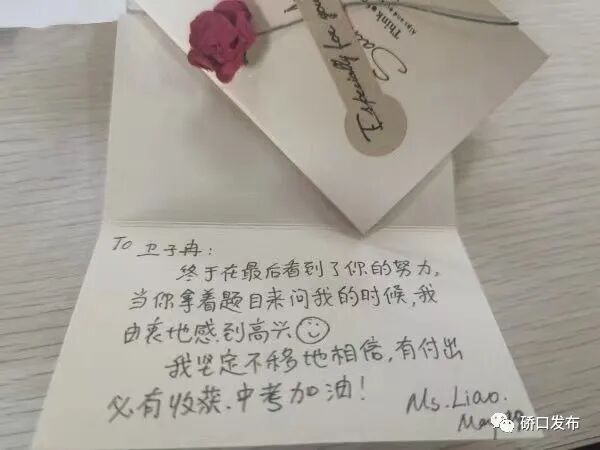 Think
Especially for you
To 卫子冉:
终于在最后看到了你的努力,
当你拿着题目来问我的时候,我
由衷地感到高兴
我坚定不移地相信,有付出
必有收获.中考加油!
Ms. Liao.
硚口发布